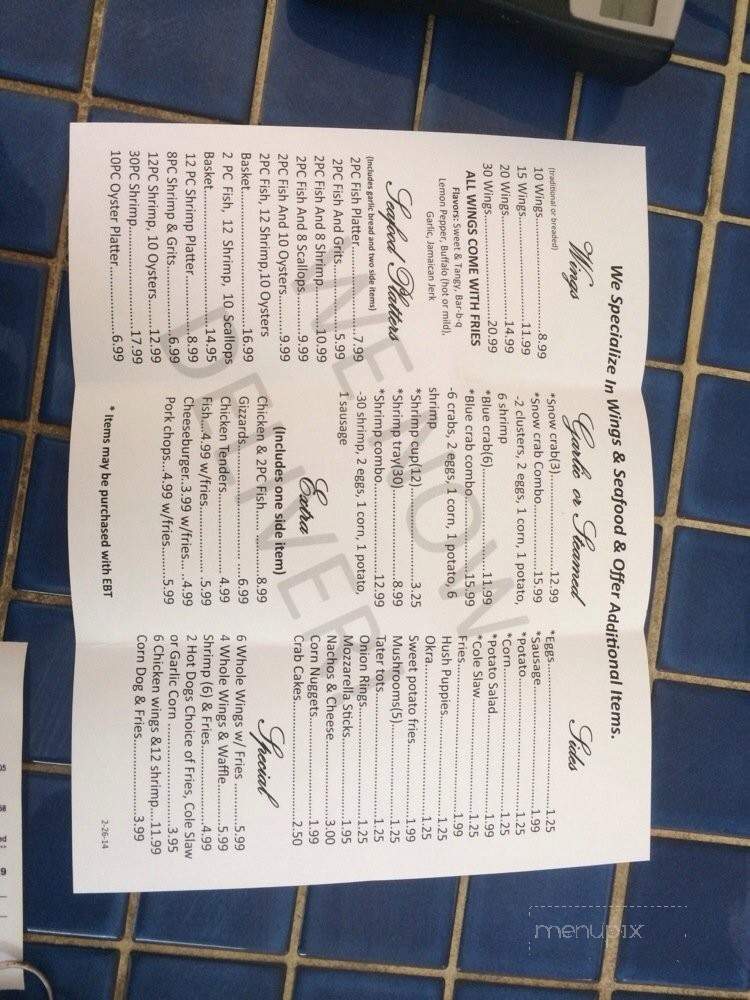 We Specialize In Wings & Seafood & Offer Additional Items.
Wings
(traditional or breaded)
10 Wings..................8.99
15 Wings..................11.99
20 Wings..................14.99
30 Wings..................20.99
ALL WINGS COME WITH FRIES
Flavors: Sweet & Tangy, Bar-b-q
Lemon Pepper, Buffalo (hot or mild),
Garlic, Jamaican Jerk
Seafood Platters
(Includes garlic bread and two side items)
2PC Fish Platter..................7.99
2PC Fish And Grits..................5.99
2PC Fish And 8 Shrimp..................10.99
2PC Fish And 8 Scallops..................9.99
2PC Fish And 10 Oysters..................9.99
2PC Fish, 12 Shrimp,10 Oysters
Basket..................16.99
2 PC Fish, 12 Shrimp, 10 Scallops
Basket..................14.95
12 PC Shrimp Platter..................8.99
8PC Shrimp & Grits..................6.99
12PC Shrimp, 10 Oysters..................12.99
30PC Shrimp..................17.99
10PC Oyster Platter..................6.99
Garlic or Steamed
*Snow crab(3)..................12.99
*Snow crab Combo..................15.99
-2 clusters, 2 eggs, 1 corn, 1 potato,
6 shrimp
*Blue crab(6)..................11.99
*Blue crab combo..................15.99
-6 crabs, 2 eggs, 1 corn, 1 potato, 6
shrimp
*Shrimp cup(12)..................3.25
*Shrimp tray(30)..................8.99
*Shrimp combo..................12.99
-30 shrimp, 2 eggs, 1 corn, 1 potato,
1 sausage
Extra
(Includes one side item)
Chicken & 2PC Fish..................8.99
Gizzards..................6.99
Chicken Tenders..................4.99
Fish....4.99 w/fries..................5.99
Cheeseburger..3.99 w/fries.....4.99
Pork chops...4.99 w/fries........5.99
* Items may be purchased with EBT
Sides
*Eggs..................1.25
*Sausage..................1.99
*Potato..................1.25
*Corn..................1.25
*Potato Salad..................1.99
*Cole Slaw..................1.25
Fries..................1.99
Hush Puppies..................1.25
Okra..................1.25
Sweet potato fries..................1.99
Mushrooms(5)..................1.25
Tater tots..................1.25
Onion Rings..................1.25
Mozzarella Sticks..................1.95
Nachos & Cheese..................3.00
Corn Nuggets..................1.99
Crab Cakes..................2.50
Special
6 Whole Wings w/ Fries..........5.99
4 Whole Wings & Waffle..........5.99
Shrimp (6) & Fries..................4.99
2 Hot Dogs Choice of Fries, Cole Slaw
or Garlic Corn ..................3.95
6 Chicken wings &12 shrimp...11.99
Corn Dog & Fries..................3.99
2-26-14
WE NOW
DELIVER
menupix